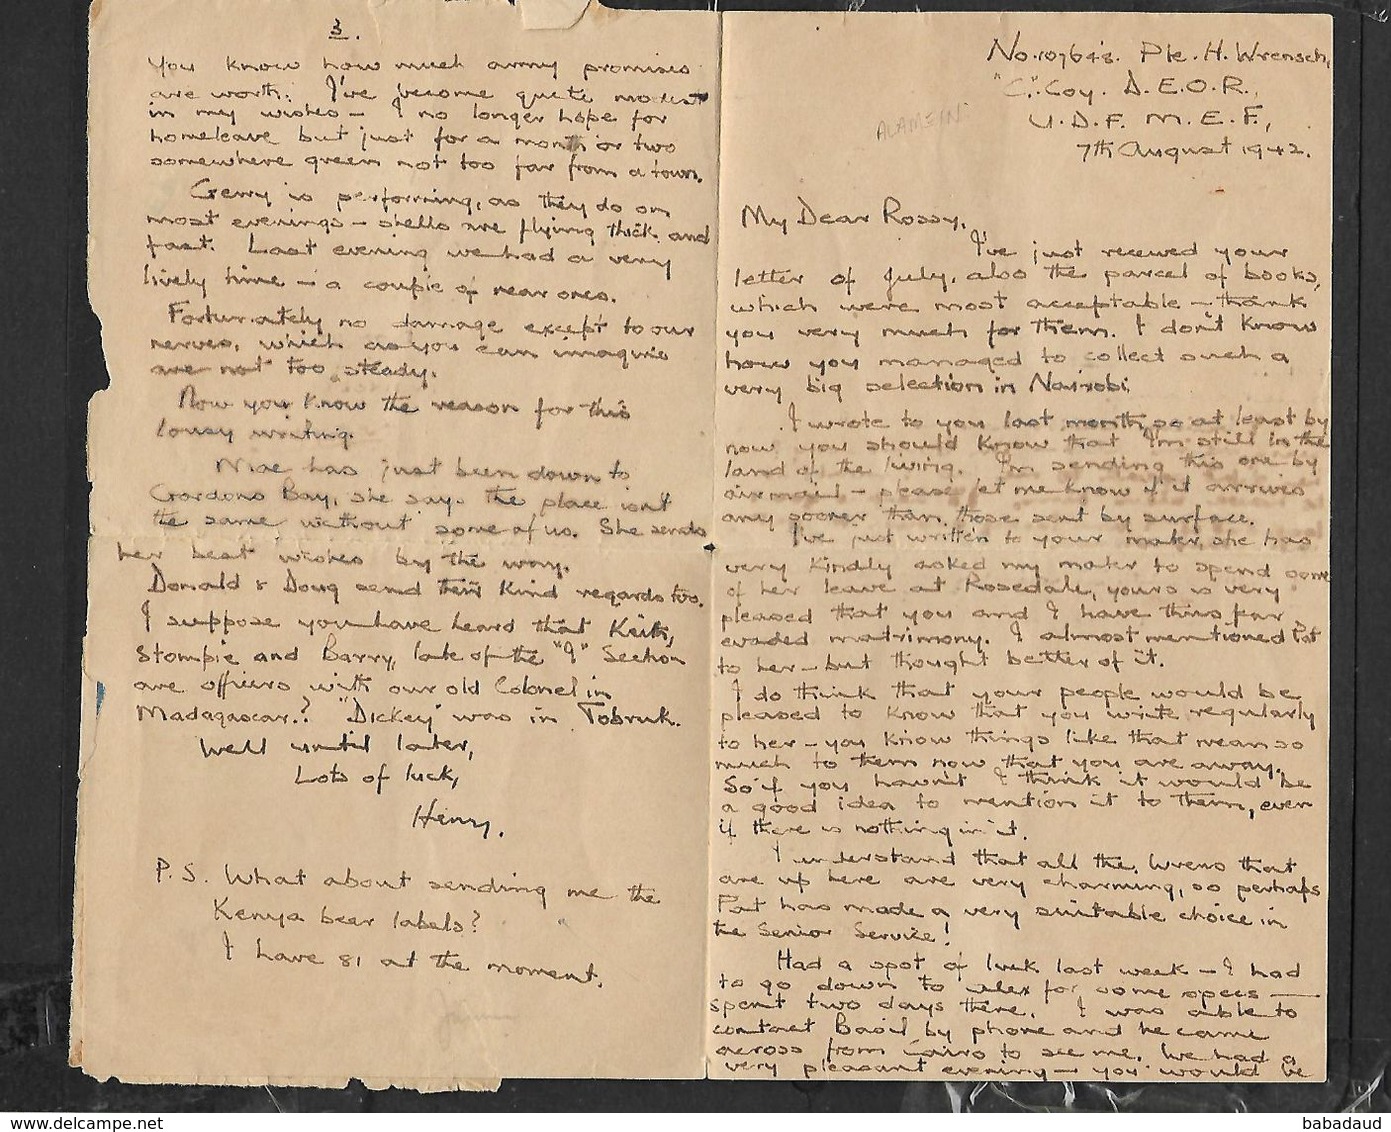 No. 107648. Pte. H. Wrensch,
"C". Coy. D.E.O.R.,
U.D.F. M.E.F.,
7th August 1942.
ALAMEIN
My Dear Rossy,
I've just received your
letter of July, also the parcel of books,
which were most acceptable – thank
you very much for them. I don't know
how you managed to collect such a
very big selection in Nairobi.
I wrote to you last month so at least by
now you should know that I'm still in the
land of the living. I'm sending this one by
airmail – please let me know if it arrives
any sooner than those sent by surface.
I've just written to your mater, she has
very kindly asked my mater to spend some
of her leave at Rosedale, yours is very
pleased that you and I have thus far
evaded matrimony. I almost mentioned Pat
to her – but thought better of it.
I do think that your people would be
pleased to know that you write regularly
to her – you know things like that mean so
much to them now that you are away.
So if you havn't I think it would be
a good idea to mention it to them, even
if there is nothing in it.
I understand that all the Wrens that
are up here are very charming, so perhaps
Pat has made a very suitable choice in
the Senior Service!
Had a spot of luck last week – I had
to go down to Alex for some specs –
spent two days there. I was able to
contact Basil by phone and he came
across from Cairo to see me. We had a
very pleasant evening – you would be
3.
You know how much army promises
are worth. I've become quite modest
in my wishes – I no longer hope for
homeleave but just for a month or two
somewhere green not too far from a town.
Gerry is performing, as they do on
most evenings – shells are flying thick and
fast. Last evening we had a very
lively time – a couple of near ones.
Fortunately no damage except to our
nerves, which as you can imagine
are not too steady.
Now you know the reason for this
lousy writing.
Mae has just been down to
Gordons Bay, she says the place isn't
the same without some of us. She sends
her best wishes by the way.
Donald & Doug send their kind regards too.
I suppose you have heard that Keith,
Stompie and Barry, late of the "I" Section
are officers with our old Colonel in
Madagascar.? "Dickey" was in Tobruk.
Well until later,
Lots of luck,
Henry.
P.S. What about sending me the
Kenya beer labels?
I have 81 at the moment.
babadaud